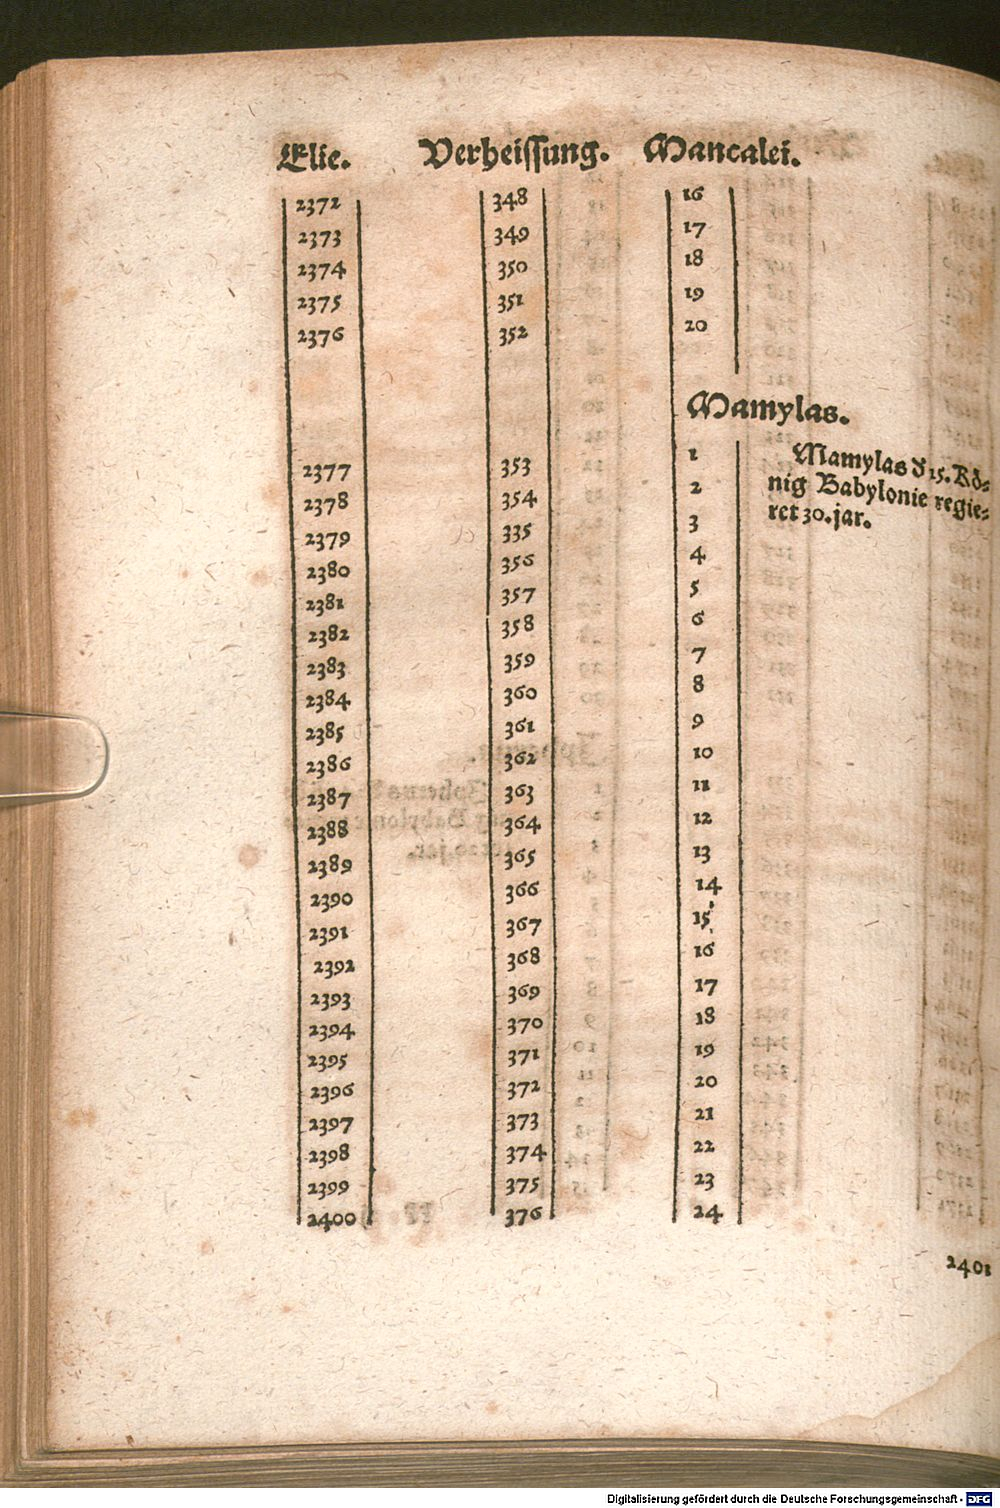 Elie. Verheissung. Mancalei.
2372 348 16
2373 349 17
2374 350 18
2375 351 19
2376 352 20
Mamylas.
2377 353 1
Mamylas d 15. Kö-
2378 354 2
nig Babylonie regie-
2379 335 3
ret 30. jar.
2380 356 4
2381 357 5
2382 358 6
2383 359 7
2384 360 8
2385 361 9
2386 362 10
2387 363 11
2388 364 12
2389 365 13
2390 366 14
2391 367 15
2392 368 16
2393 369 17
2394 370 18
2395 371 19
2396 372 20
2397 373 21
2398 374 22
2399 375 23
2400 376 24
2401
Digitalisierung gefördert durch die Deutsche Forschungsgemeinschaft - DFG